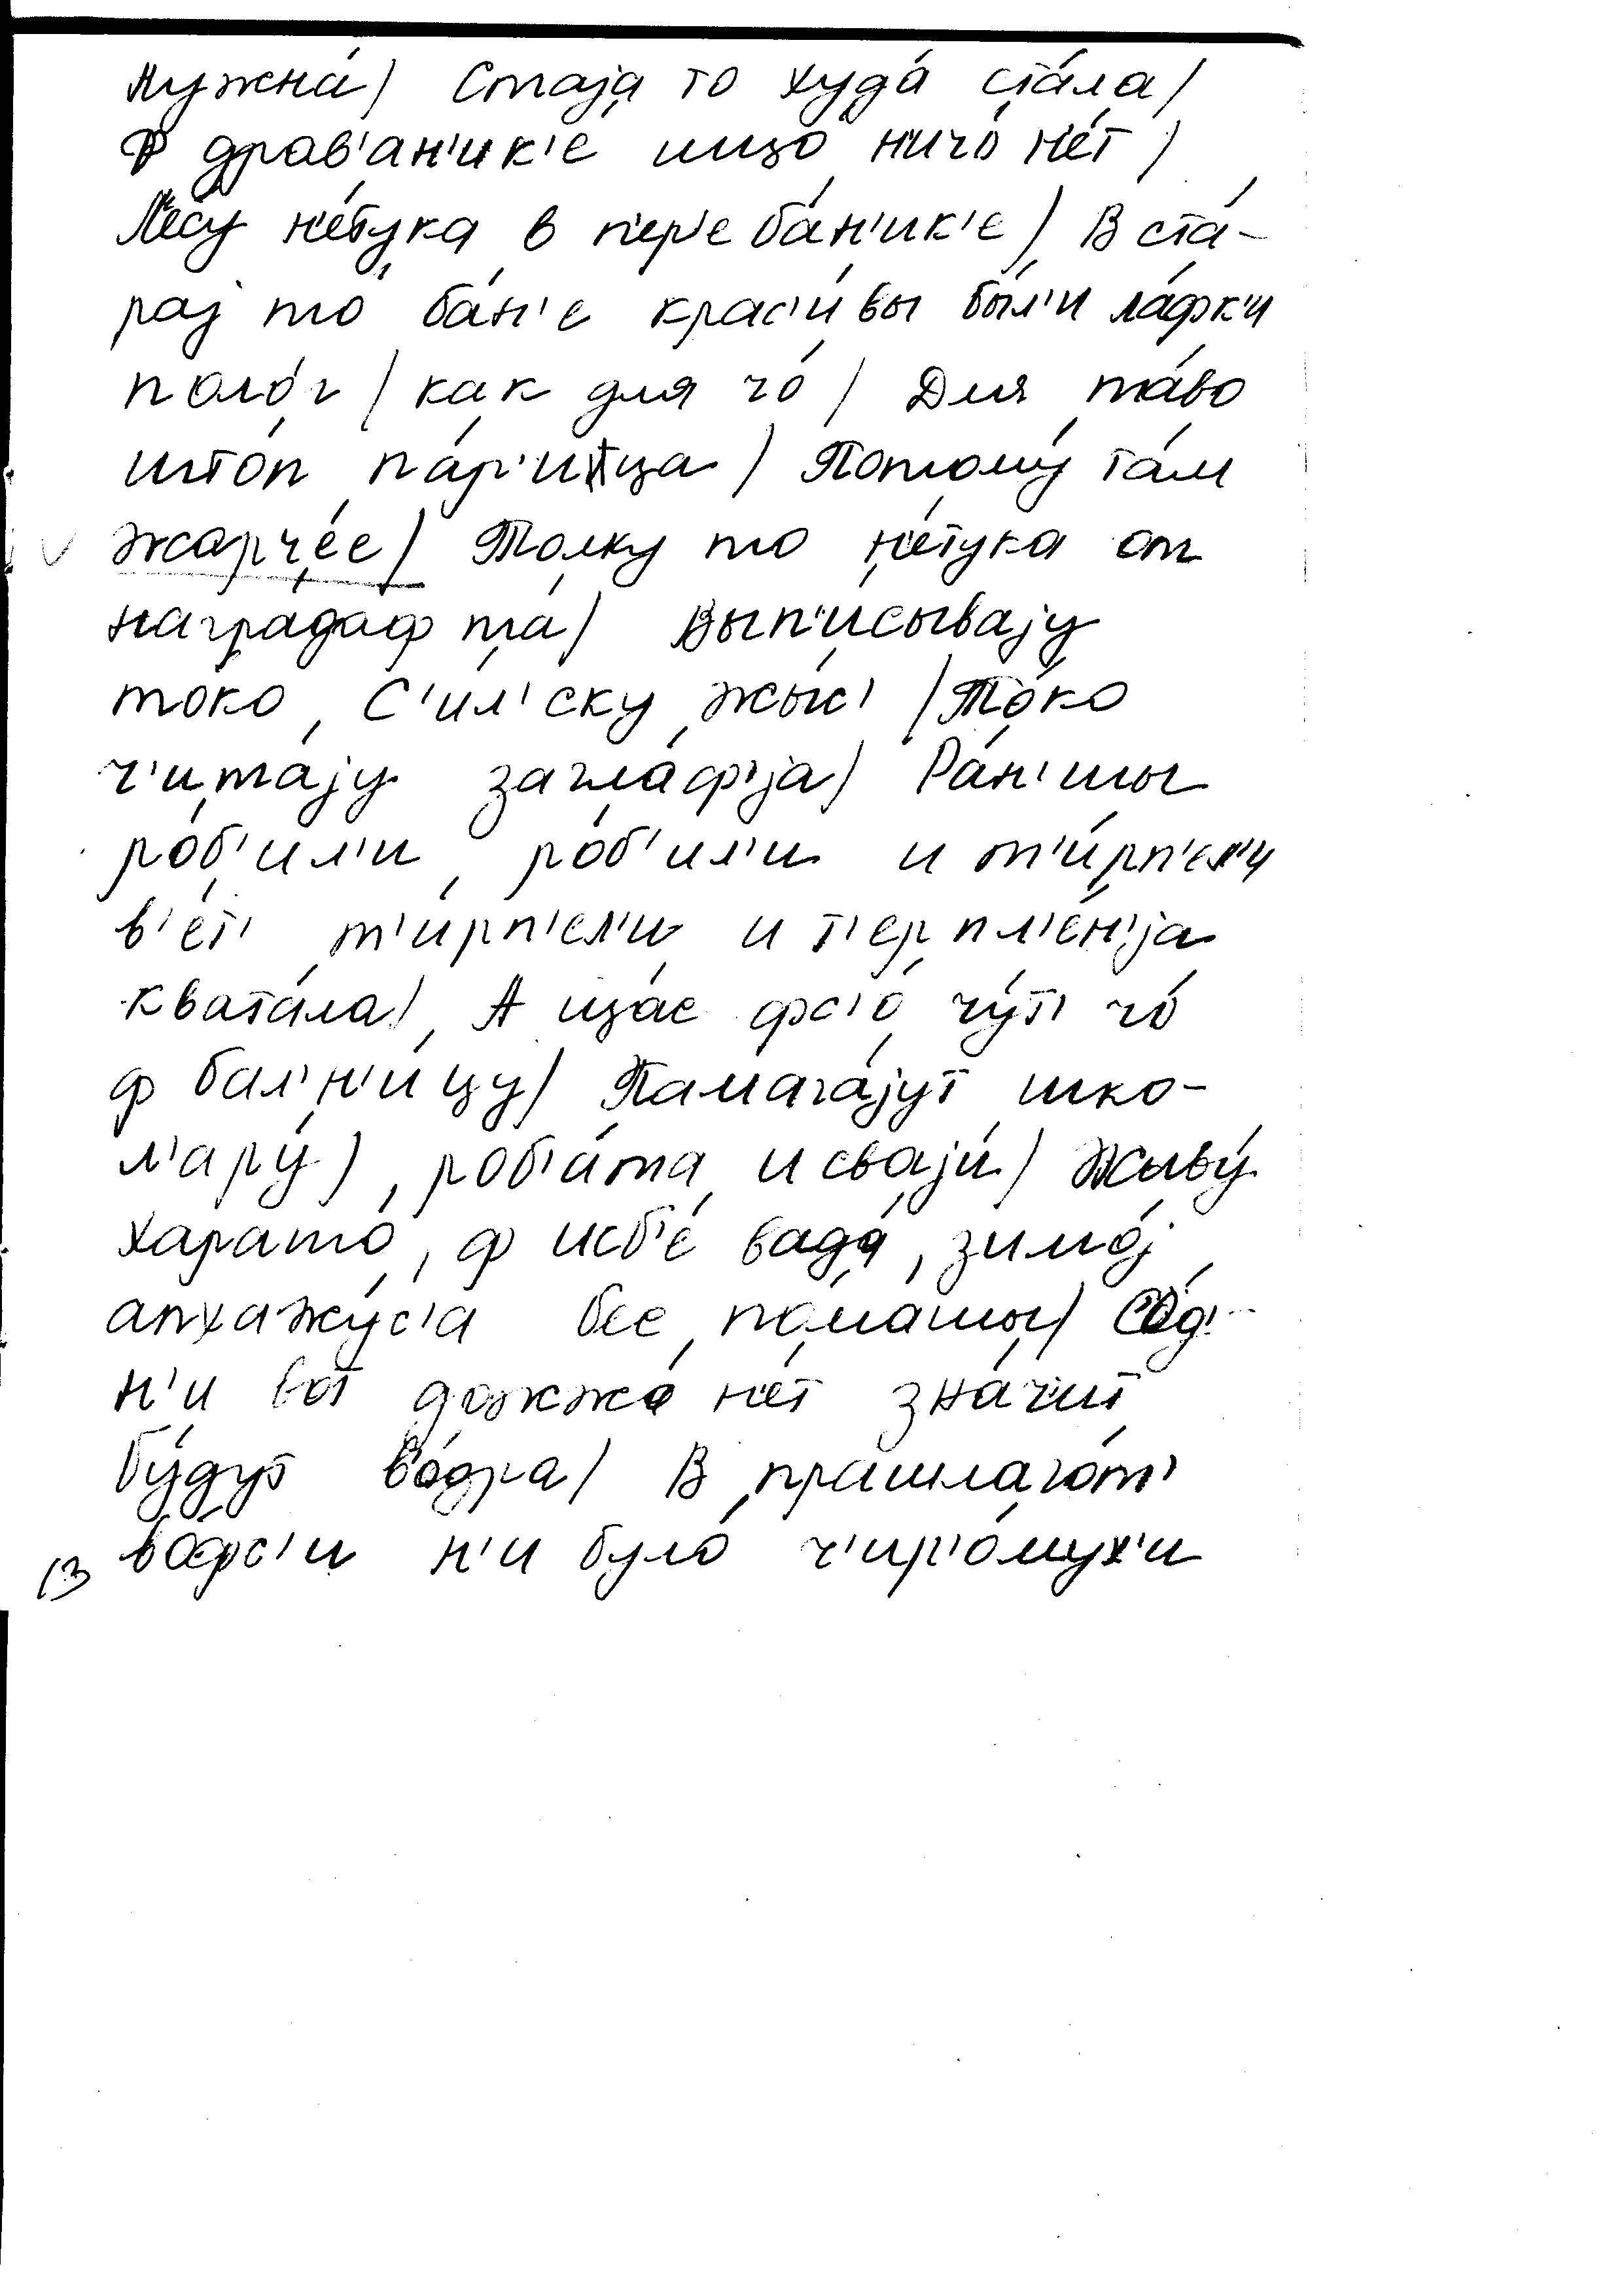 нужна́) Стаја то худа́ ста́ла)
Ф драв'ан'ик'е ишзо ничо́ нет)
Ле́су не́тука в пер'е ба́н'ик'е) В ста́-
рај то ба́н'е крас'и́вы были ла́фк'и
поло́г / как для чо́ / Для та́во
што́п па́р'итца) Потому́ та́м
жарче́е) Толку то не́тука от
наградаф та) Вып'и́сываjу
то́ко С'ил'ску жыс' / То́ко
ч'ита́jу загла́ф'jа) Ра́н'шы
ро́б'ил'и, ро́б'ил'и и т'и́рп'ел'и
в'ет' т'и́рп'ел'и и т'ерпл'е́н'jа
квата́ла) А щас фс'о́ чут' чо́
ф бал'н'и́цу) Памага́jут шко-
л'ару́), роб'а́та и сваjи́) Жыву́
харашо́, ф исб'е́ вада́, зимо́j
апхажу́с'а бес по́машы) Сод'-
н'и вот дажжа́ нет зна́чит
бу́дут в'о́дра) В прашлаго́т'
во́фс'и н'и було́ ч'ир'о́мух'и
13